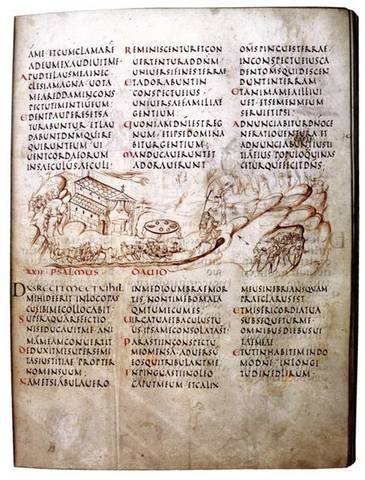 AMEETCUMCLAMARĒ
ADEUMEXAUDIUITME
APUDTELAUSMEAINEC
CLESIAMAGNA UOTA
MEAREDDAMINCONS
PICTUTIMENTIUMEUM
EDENTPAUPERESETSA
TURABUNTUR ETLAU
DABUNTDNMQUIRE
QUIRUNTEUM UI
UENTCORDAEORUM
INSAECULŪSAECULI
REMINISCENTURETCON
UERTENTURADDNM
UNIUERSIFINESTERRAE
ETADORABUNTIN
CONSPECTUEIUS
UNIUERSAEFAMILIAE
GENTIUM
QUONIAMDNIESTREG
NUM ETIPSEDOMINA
BITURGENTIUM
MANDUCAUERUNTET
ADORAUERUNT
OMSPINGUESTERRAE
INCONSPECTUEIUSCA
DENTOMSQUIDESCEN
DUNTINTERRAM
ETANIMAMEAILLIUI
UET ETSEMENMEUM
SERUIETIPSI
ADNUNTIABITURDNOGE
NERATIOUENTURA ET
ADNUNTIABUNTIUSTI
TIAMEIUS POPULOQUINAS
CETURQUEFECITDNS
XXII PSALMUS DAUID
DNSREGITMEETNIHIL
MIHIDEERIT INLOCOPAS
CUAEIBIMECOLLOCABIT
SUPERAQUAREFECTIO
NISEDUCAUITME ANI
MAMMEAMCONUERTIT
DEDUXITMESUPERSEMI
TASIUSTITIAE PROPTER
NOMENSUUM
NAMETSIAMBULAUERO
INMEDIOUMBRAEMOR
TIS NONTIMEBOMALA
QMTUMECUMES
UIRGATUAETBACULUSTU
US IPSAMECONSOLATAST
PARASTIINCONSPECTU
MEOMENSA ADUERSU
EOSQUITRIBULANTME
INPINGUASTIINOLEO
CAPUTMEUM ETCALIX
MEUSINEBRIANSQUAM
PRAECLARUSEST
ETMISERICORDIATUA
SUBSEQUETURME
OMNIBUSDIEBUSUI
TAEMEAE
ETUTINHABITEMINDO
MODNI INLONGI
TUDINEDIERUM